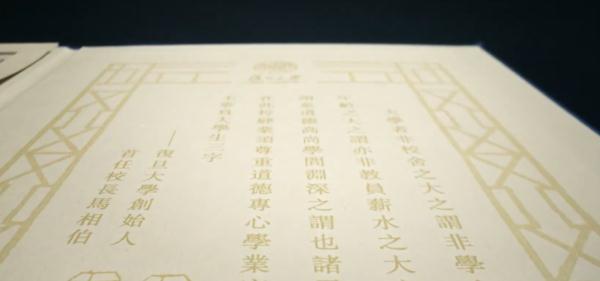 復旦大學
大學者非校舍之大之謂非學
年齡之大之謂亦非教員薪水之大
道德高尚學問淵深之謂也諸
在此校肄業須尊重道德專心學業
不辜負大學生三字
——復旦大學創始人
首任校長馬相伯